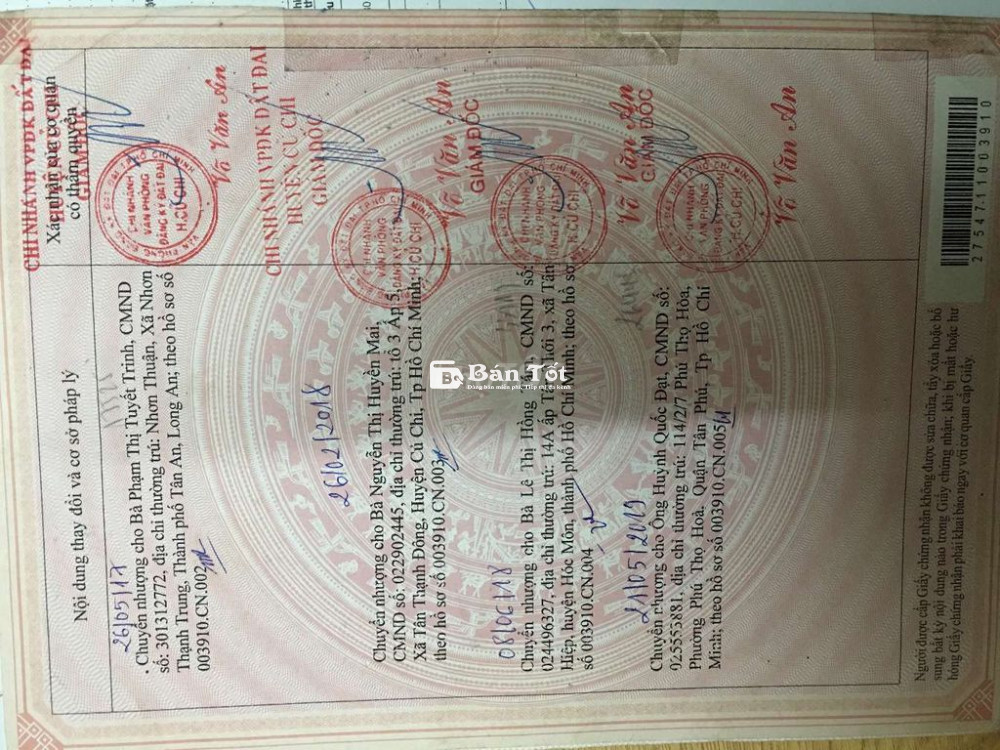 Nội dung thay đổi và cơ sở pháp lý
Xác nhận của cơ quan
có thẩm quyền
CHI NHÁNH VPĐK ĐẤT ĐAI
GIÁM ĐỐC
26/05/17
Chuyển nhượng cho Bà Phạm Thị Tuyết Trinh, CMND
số: 301312772, địa chỉ thường trú: Nhơn Thuận, Xã Nhơn
Thạnh Trung, Thành phố Tân An, Long An; theo hồ sơ số
003910.CN.002
CHI NHÁNH
VĂN PHÒNG
ĐĂNG KÝ ĐẤT ĐAI
H.CỦ CHI
Võ Văn An
CHI NHÁNH VPĐK ĐẤT ĐAI
HUYỆN CỦ CHI
GIÁM ĐỐC
26/02/2018
Chuyển nhượng cho Bà Nguyễn Thị Huyền Mai,
CMND số: 022902445, địa chỉ thường trú: tổ 3 Ấp 5,
Xã Tân Thạnh Đông, Huyện Củ Chi, Tp Hồ Chí Minh;
theo hồ sơ số 003910.CN.003
CHI NHÁNH
VĂN PHÒNG
ĐĂNG KÝ ĐẤT ĐAI
H.CỦ CHI
Võ Văn An
GIÁM ĐỐC
08/06/18
Chuyển nhượng cho Bà Lê Thị Hồng CMND số:
024496327, địa chỉ thường trú: 14A ấp Tân Thới 3, xã Tân
Hiệp, huyện Hóc Môn, thành phố Hồ Chí Minh; theo hồ sơ
số 003910.CN.004
CHI NHÁNH
VĂN PHÒNG
ĐĂNG KÝ ĐẤT ĐAI
H.CỦ CHI
Võ Văn An
GIÁM ĐỐC
21/05/2019
Chuyển nhượng cho Ông Huỳnh Quốc Đạt, CMND số:
025555881, địa chỉ thường trú: 114/2/7 Phú Thọ Hòa,
Phường Phú Thọ Hoà, Quận Tân Phú, Tp Hồ Chí
Minh; theo hồ sơ số 003910.CN.005
CHI NHÁNH
VĂN PHÒNG
ĐĂNG KÝ ĐẤT ĐAI
H.CỦ CHI
Võ Văn An
Người được cấp Giấy chứng nhận không được sửa chữa, tẩy xóa hoặc bổ
sung bất kỳ nội dung nào trong Giấy chứng nhận; khi bị mất hoặc hư
hỏng Giấy chứng nhận phải khai báo ngay với cơ quan cấp Giấy.
275471 1003910
Bán Tốt
Đăng bán miễn phí, Tiếp thị đa kênh